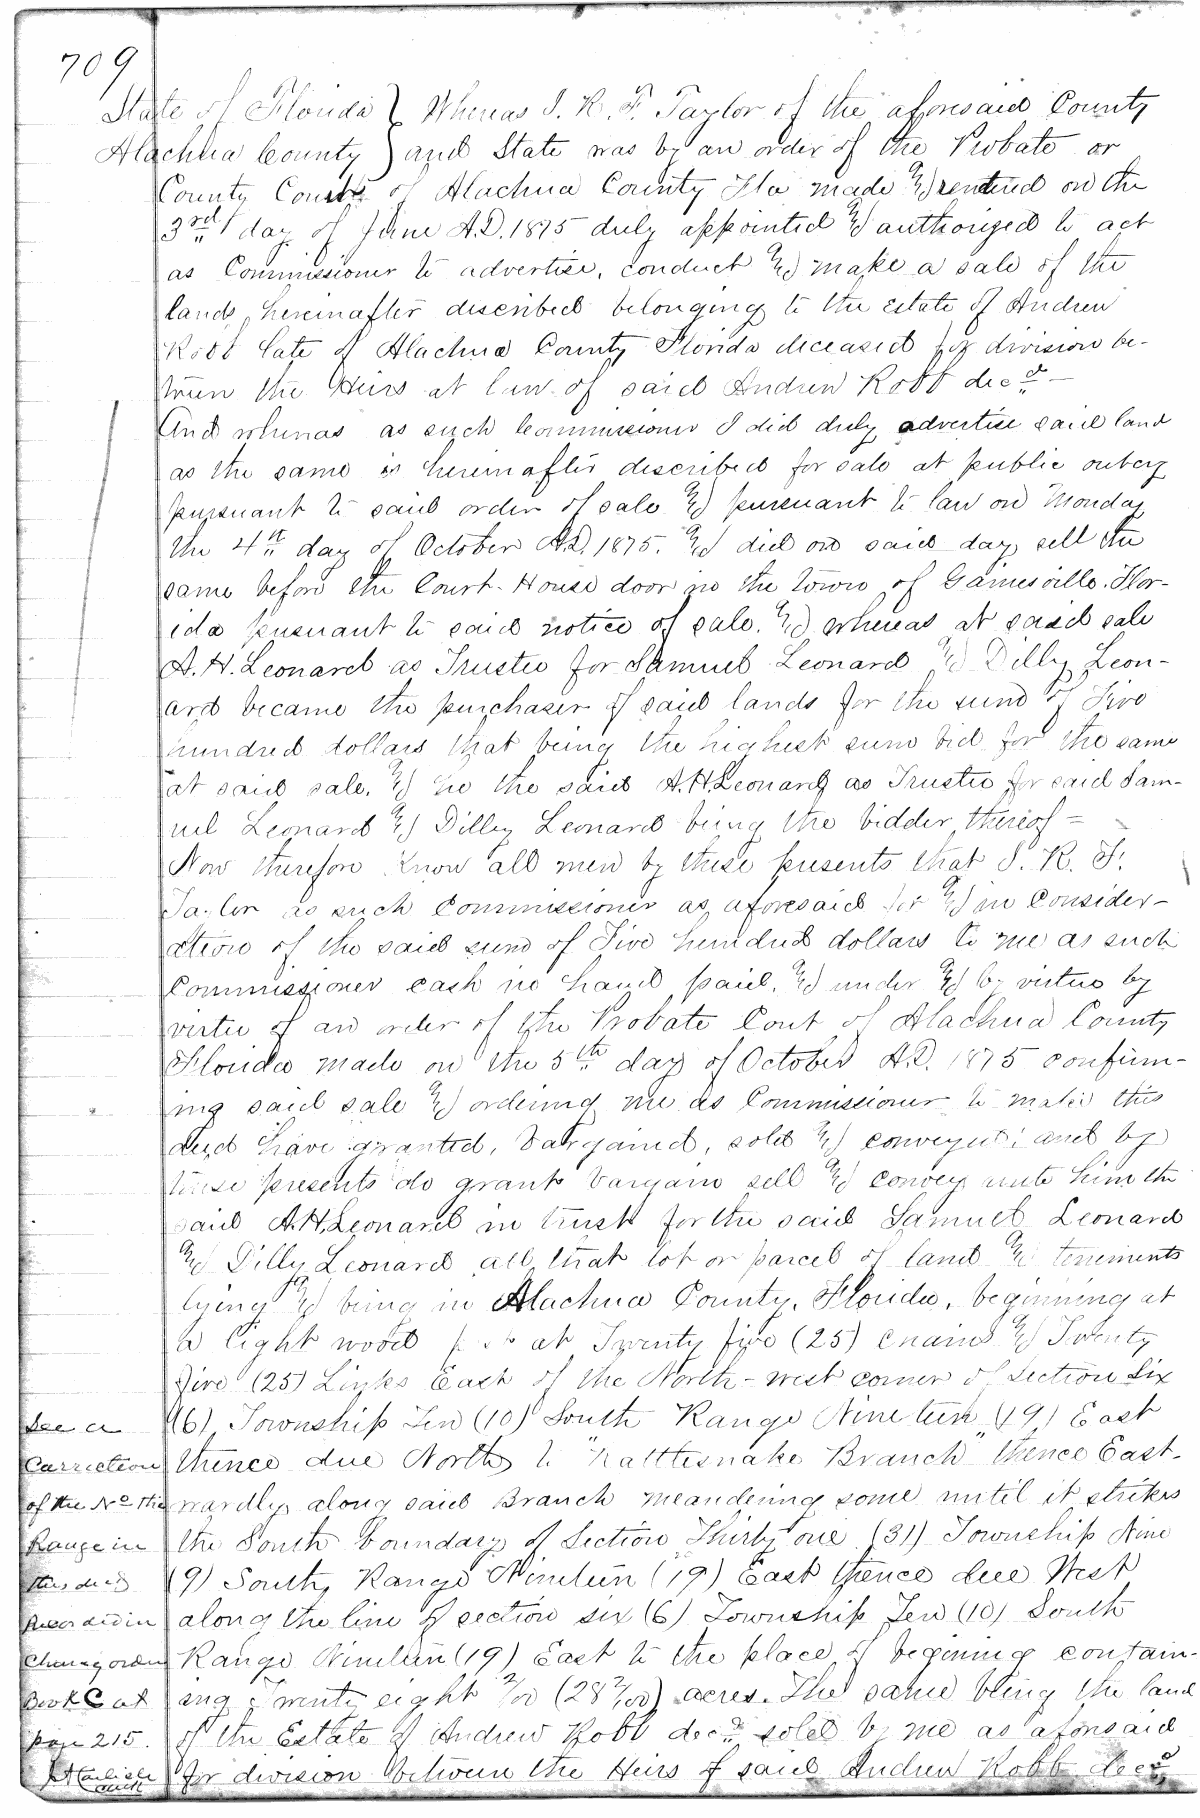 709
State of Florida } Whereas I. R. F. Taylor of the aforesaid County
Alachua County } and State was by an order of the Probate or
County Courts of Alachua County Fla made & rentered on the
3rd day of June A.D. 1875 duly appointed & authorized to act
as Commissioner to advertise, conduct & make a sale of the
lands hereinafter discribed belonging to the Estate of Andrew
Robb late of Alachua County Florida deceased for division be-
tween the Heirs at law of said Andrew Robb decd —
And whereas as such Commissioner I did duly advertise said land
as the same is hereinafter discribed for sale at public outcry
pursuant to said order of sale & pursuant to law on Monday
the 4th day of October A.D. 1875. & did on said day sell the
same before the Court-House door in the town of Gainesville. Flor-
ida pursuant to said notice of sale. & whereas at said sale
A. H. Leonard as Trustee for Samuel Leonard & Dilly Leon-
ard became the purchaser of said lands for the sum of Five
hundred dollars that being the highest sum bid for the same
at said sale. & he the said A.H. Leonard as Trustee for said Sam-
uel Leonard & Dilley Leonard being the bidder thereof =
Now therefore Know all men by these presents that I. R. F.
Taylor as such Commissioner as aforesaid for & in consider-
ation of the said sum of Five hundred dollars to me as such
Commissioner cash in hand paid, & under & by virtue by
virtue of an order of the Probate Cout of Alachua County
Florida made on the 5th day of October A.D. 1875 confirm-
ing said sale & ordering me as Commissioner to make this
deed have granted, bargained, sold & conveyed; and by
these presents do grant bargain sell & convey unto him the
said A.H. Leonard in trust for the said Samuel Leonard
& Dilly Leonard all that lot or parcel of land & tenements
lying & being in Alachua County, Florida, beginning at
a light wood at Twenty five (25) chains & Twenty
five (25) Links East of the North-west corner of Section Six
(6) Township Ten (10) South Range Nineteen (19) East
thence due North to "Rattlesnake Branch" thence East-
wardly along said Branch meandering some until it strikes
the South boundary of Section Thirty one (31) Township Nine
(9) South, Range Nineteen (19) East thence due West
along the line of section six (6) Township Ten (10) South
Range Nineteen (19) East to the place of begining contain-
ing Twenty eight 2/100 (28 2/100) acres. The same being the land
of the Estate of Andrew Robb decd sold by me as aforesaid
for division between the Heirs of said Andrew Robb decd,
See a
Carrection
of the No the
Range in
this deed
Recorded in
Book C at
page 215.